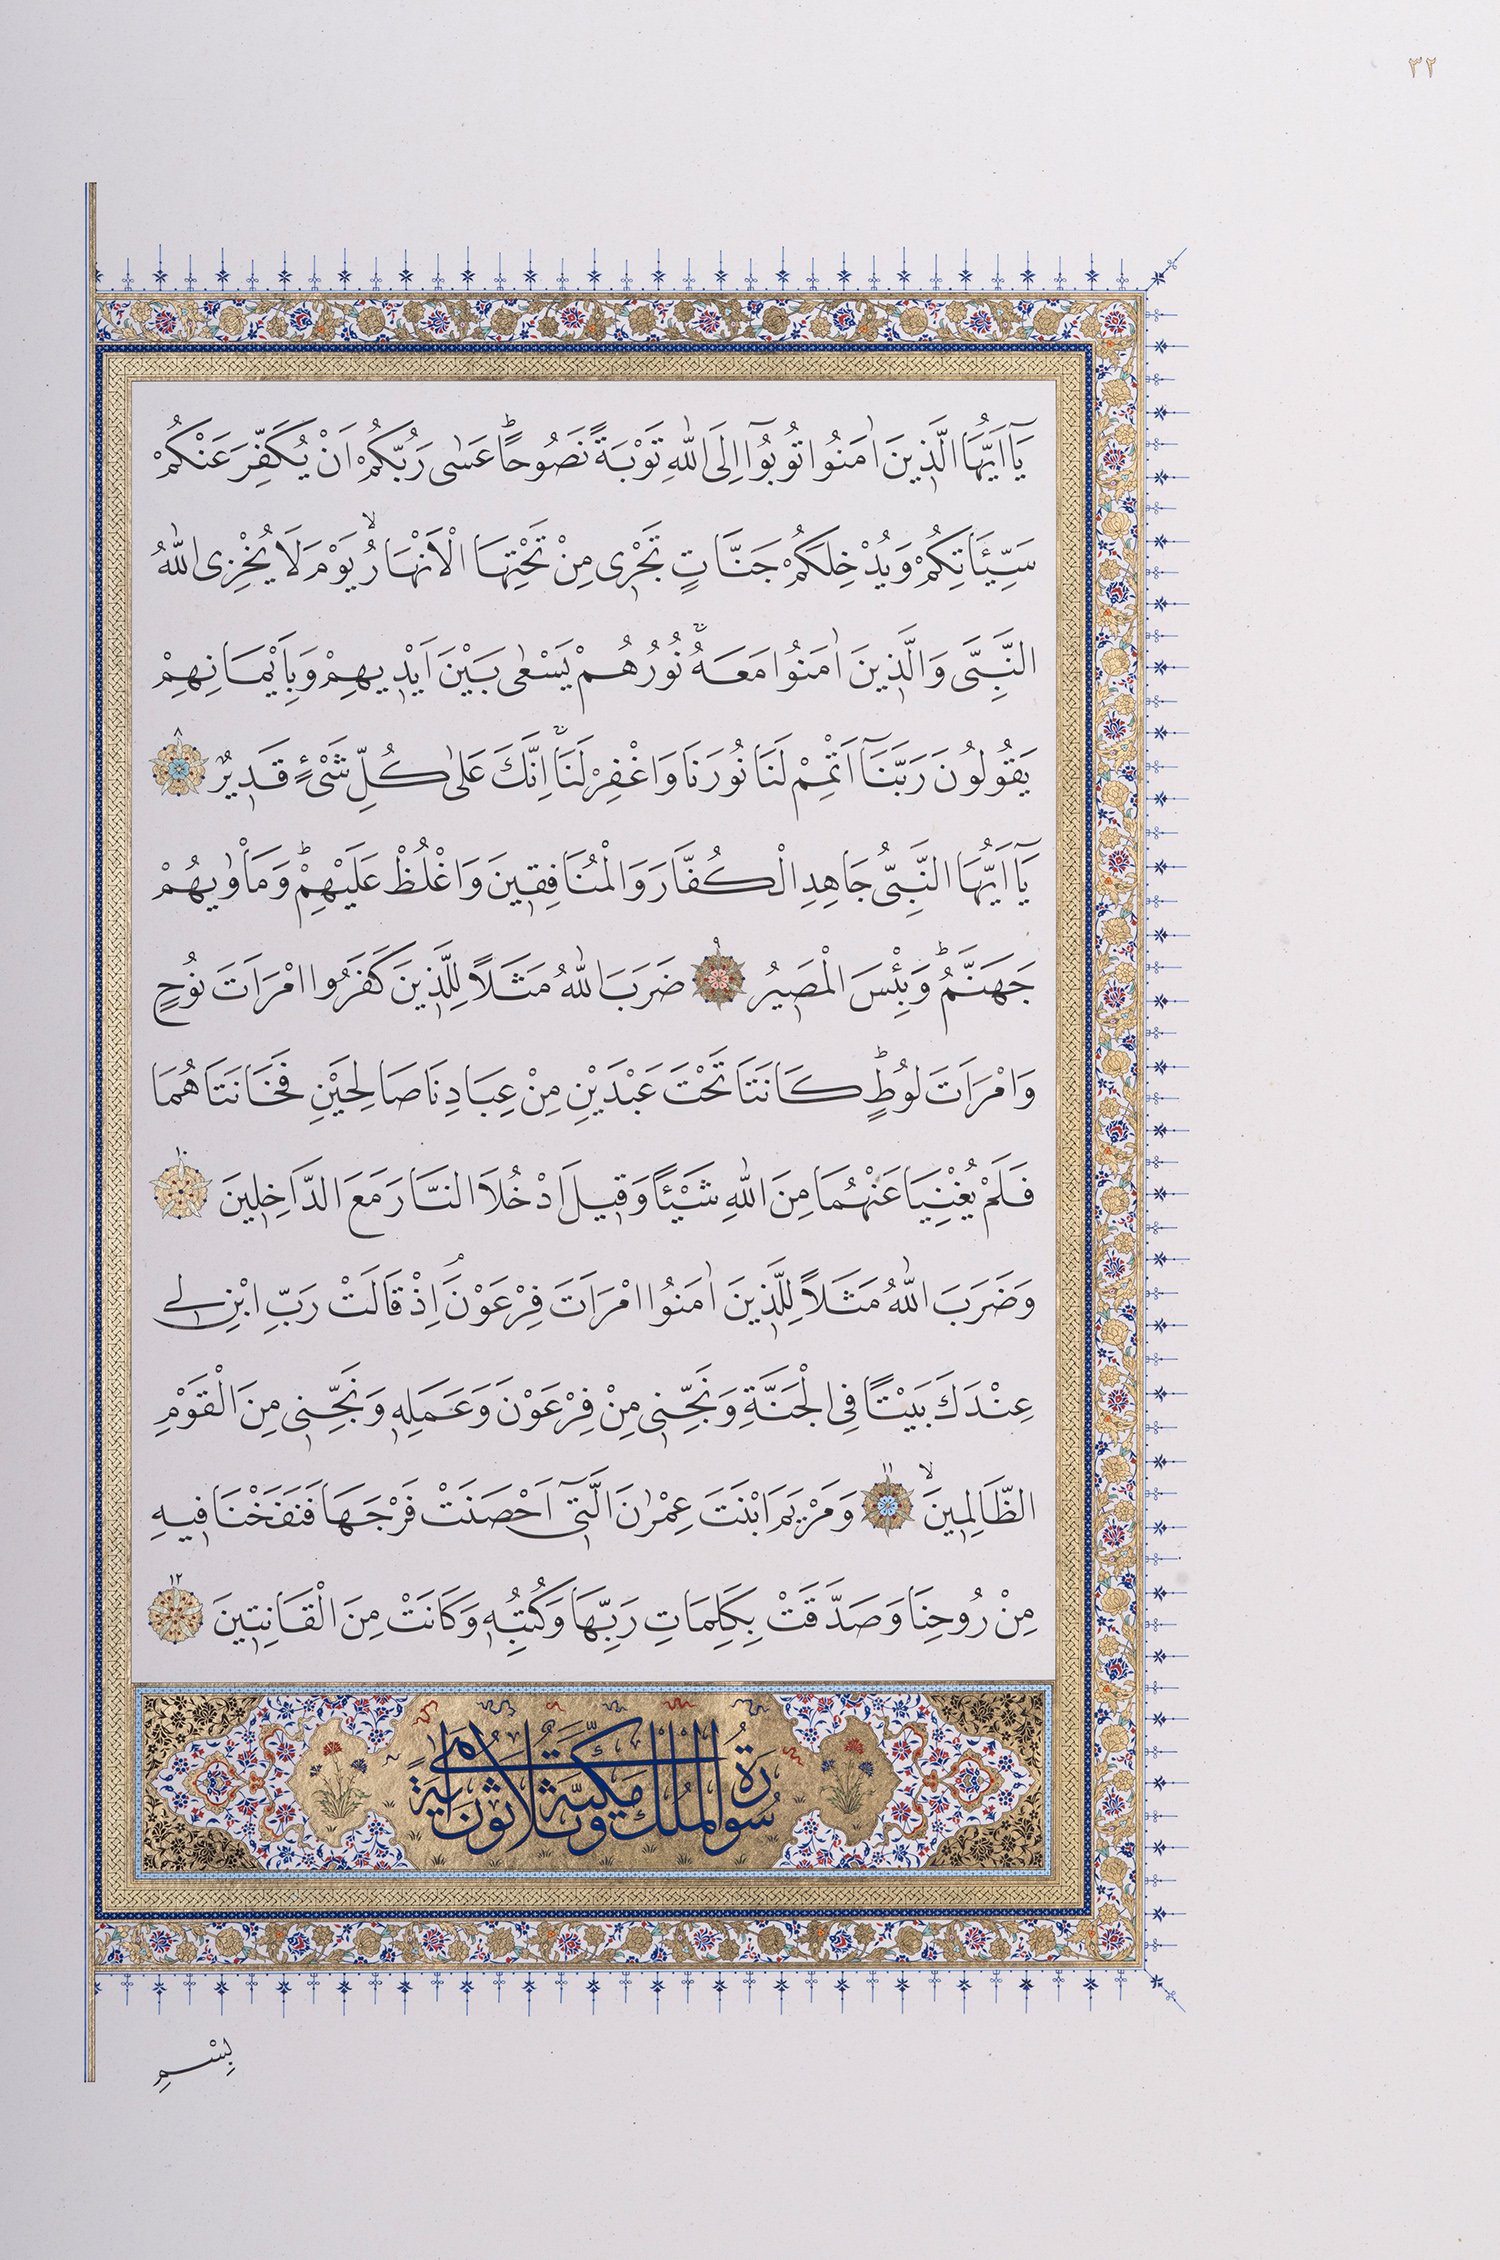 ٣٢
يَٓا اَيُّهَا الَّذ۪ينَ اٰمَنُوا تُوبُٓوا اِلَى اللّٰهِ تَوْبَةً نَصُوحًاۜ عَسٰى رَبُّكُمْ اَنْ يُكَفِّرَ عَنْكُمْ
سَيِّـَٔاتِكُمْ وَيُدْخِلَكُمْ جَنَّاتٍ تَجْر۪ي مِنْ تَحْتِهَا الْاَنْهَارُۙ يَوْمَ لَا يُخْزِي اللّٰهُ
النَّبِيَّ وَالَّذ۪ينَ اٰمَنُوا مَعَهُۚ نُورُهُمْ يَسْعٰى بَيْنَ اَيْد۪يهِمْ وَبِاَيْمَانِهِمْ
يَقُولُونَ رَبَّنَٓا اَتْمِمْ لَنَا نُورَنَا وَاغْفِرْ لَنَاۚ اِنَّكَ عَلٰى كُلِّ شَيْءٍ قَد۪يرٌ ٨
يَٓا اَيُّهَا النَّبِيُّ جَاهِدِ الْكُفَّارَ وَالْمُنَافِق۪ينَ وَاغْلُظْ عَلَيْهِمْۜ وَمَأْوٰيهُمْ
جَهَنَّمُۜ وَبِئْسَ الْمَص۪يرُ ٩ ضَرَبَ اللّٰهُ مَثَلًا لِلَّذ۪ينَ كَفَرُوا امْرَاَتَ نُوحٍ
وَامْرَاَتَ لُوطٍۜ كَانَتَا تَحْتَ عَبْدَيْنِ مِنْ عِبَادِنَا صَالِحَيْنِ فَخَانَتَاهُمَا
فَلَمْ يُغْنِيَا عَنْهُمَا مِنَ اللّٰهِ شَيْـًٔا وَق۪يلَ ادْخُلَا النَّارَ مَعَ الدَّاخِل۪ينَ ١٠
وَضَرَبَ اللّٰهُ مَثَلًا لِلَّذ۪ينَ اٰمَنُوا امْرَاَتَ فِرْعَوْنَۢ اِذْ قَالَتْ رَبِّ ابْنِ ل۪ي
عِنْدَكَ بَيْتًا فِي الْجَنَّةِ وَنَجِّن۪ي مِنْ فِرْعَوْنَ وَعَمَلِه۪ وَنَجِّن۪ي مِنَ الْقَوْمِ
الظَّالِم۪ينَۙ ١١ وَمَرْيَمَ ابْنَتَ عِمْرٰنَ الَّت۪ٓي اَحْصَنَتْ فَرْجَهَا فَنَفَخْنَا ف۪يهِ
مِنْ رُوحِنَا وَصَدَّقَتْ بِكَلِمَاتِ رَبِّهَا وَكُتُبِه۪ وَكَانَتْ مِنَ الْقَانِت۪ينَ ١٢
سُورَةُ الْمُلْكِ مَكِّيَّةٌ وَهِيَ ثَلَاثُونَ اٰيَةً
بِسْمِ